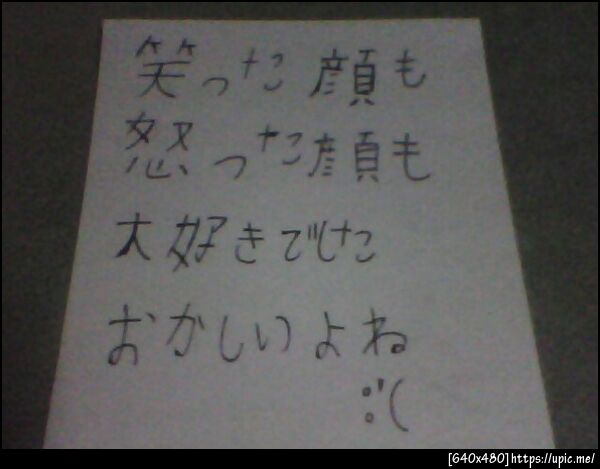 笑った顔も
怒った顔も
大好きでした
おかしいよね
:'(
[640x480]https://upic.me/